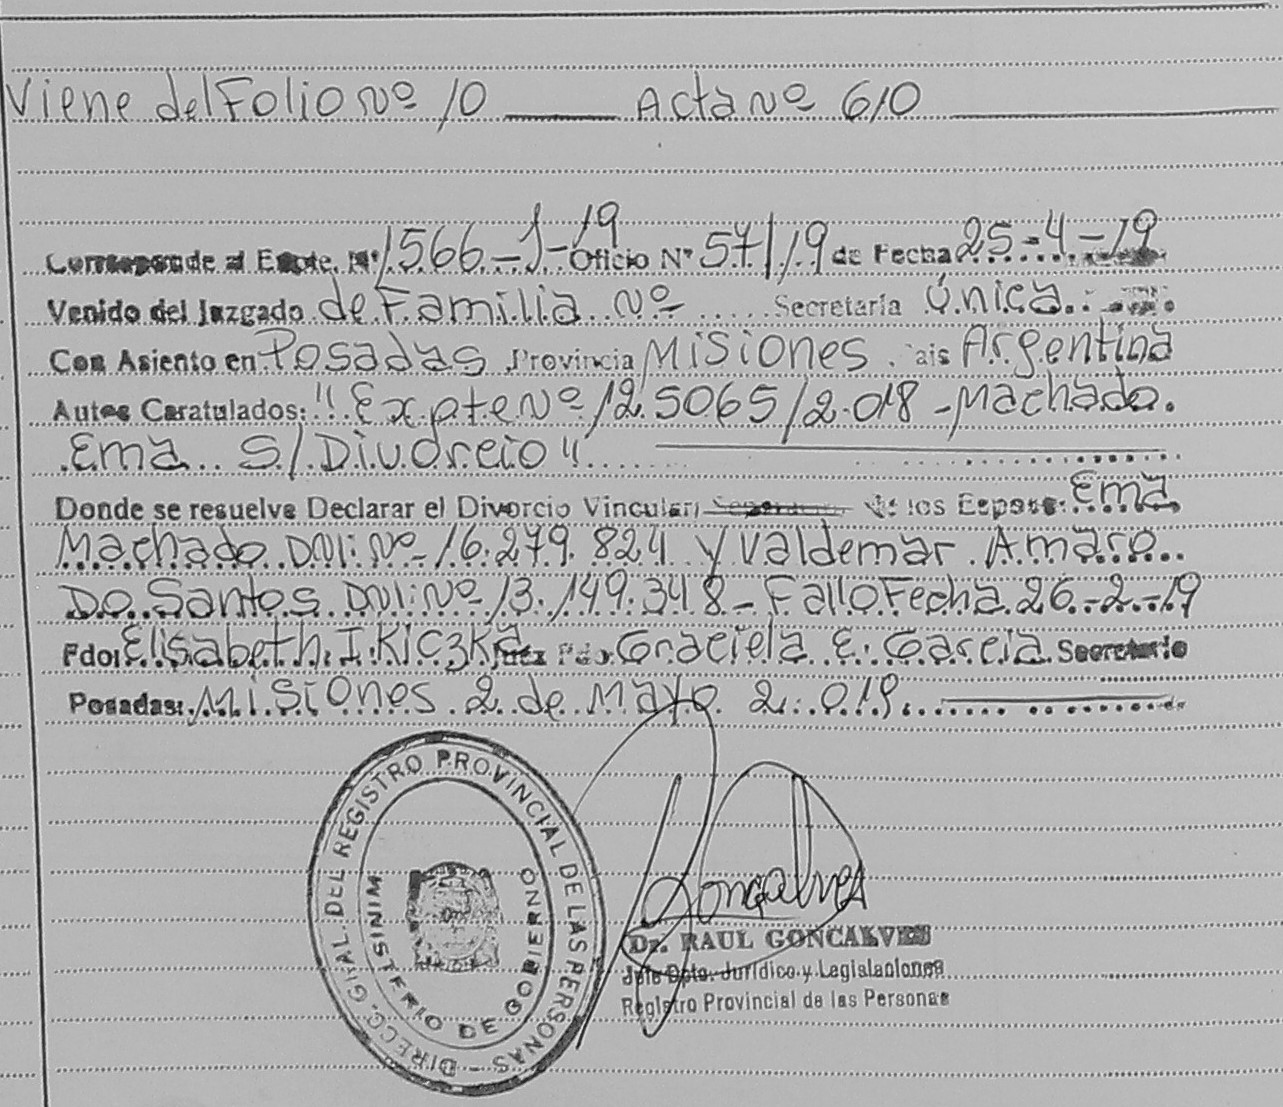 Viene del Folio Nº 10 ____ Acta Nº 610
Corresponde al Expte. Nº 1566-J-19 Oficio Nº 571/19 de Fecha 25-4-19
Venido del Juzgado de Familia Nº Secretaría Única
Con Asiento en Posadas Provincia Misiones País Argentina
Autos Caratulados: "Expte Nº 125065/2018 - Machado
Ema S/Divorcio"
Donde se resuelve Declarar el Divorcio Vincular, de los Esposos: Ema
Machado DNI: Nº 16.279.824 y Valdemar Amaro
Do Santos DNI: Nº 13.149.348 - Fallo Fecha 26-2-19
Fdo: Elisabeth I. Kiczka Juez Fdo: Graciela E. Garcia Secretario
Posadas: Misiones 2 de Mayo 2.019.
DIRECC. GRAL. DEL REGISTRO PROVINCIAL DE LAS PERSONAS -
MINISTERIO DE GOBIERNO
Goncalves
Dr. RAUL GONCALVES
Jefe Dpto. Jurídico y Legislaciones
Registro Provincial de las Personas